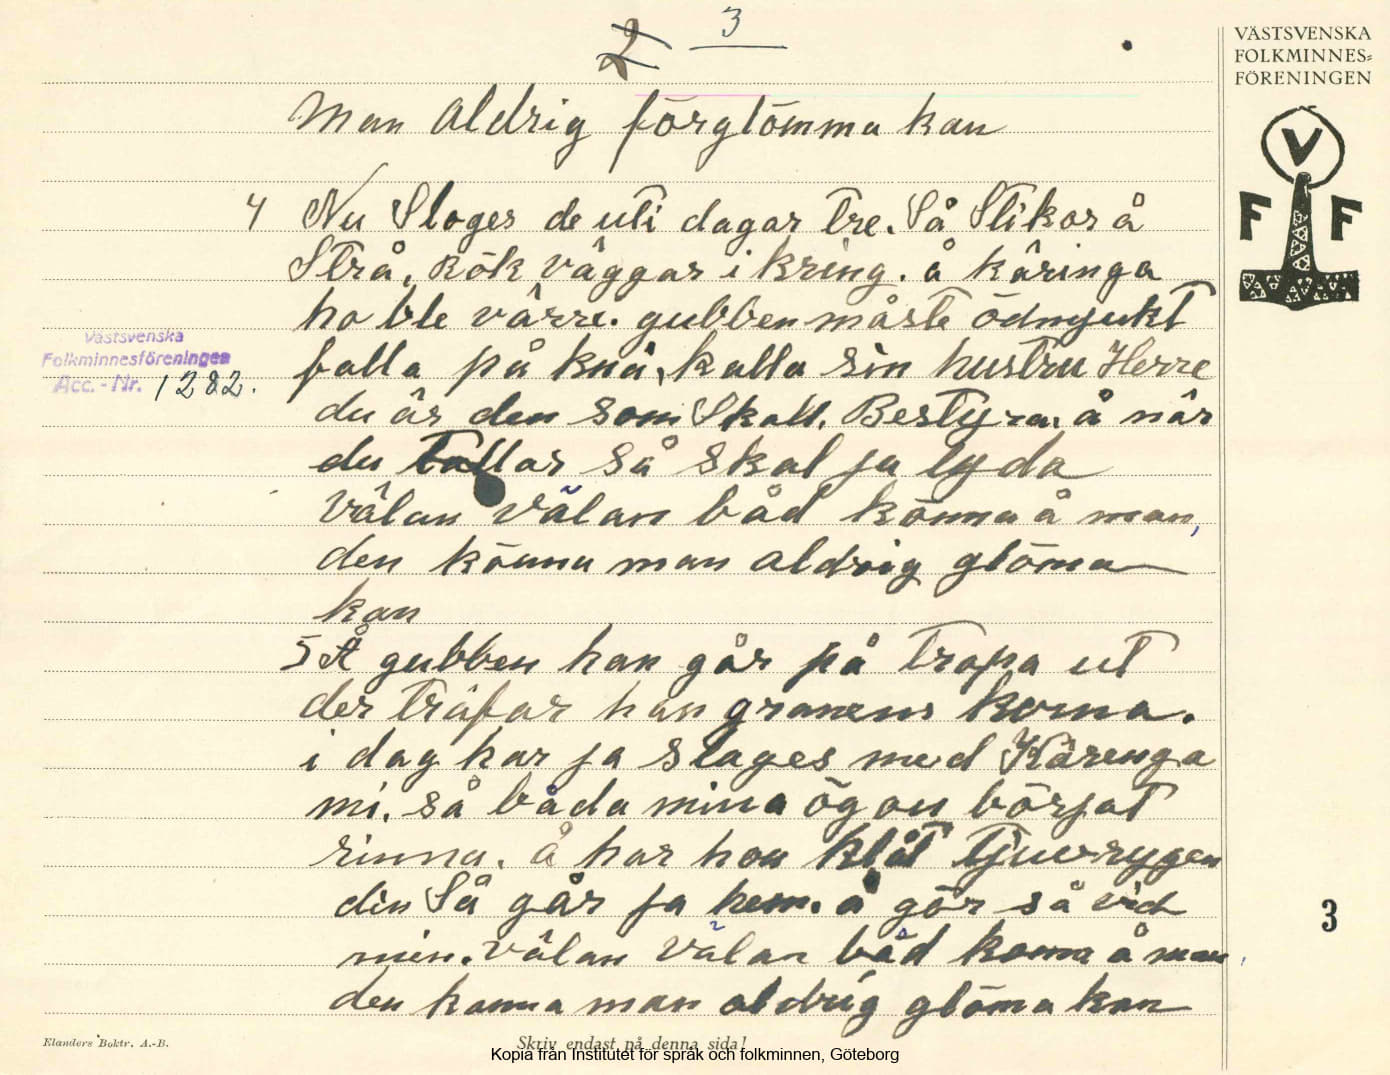 2 3
VÄSTSVENSKA
FOLKMINNES=
FÖRENINGEN
V
F F
Man aldrig förglömma kan
4 Nu Sloges de uti dagar tre. Så Stikor å
Strå, Kök väggar i kring. å käringa
ho ble värre. gubben måste ödmjukt
falla på knä, kalla sin hustru Herre
du är den som Skall. Bestyra. å när
du tallar så skal ja lyda
Västsvenska
Folkminnesföreningen
Acc. - Nr. 1282.
välan välan båd könna å man,
den könna man aldrig glöma
kan
5 Å gubben han går på trapa ut
der träfar han granens kona.
i dag har ja slages med Kärenga
mi. så båda mina ögon börjat
rinna. å har hon klåt tjuvrygen
din Så går ja hem. å gör så vid
min. välan välan båd kona å man,
den kanna man aldrig glöma kan
3
Elanders Boktr. A.-B.
Skriv endast på denna sida!
Kopia från Institutet för språk och folkminnen, Göteborg